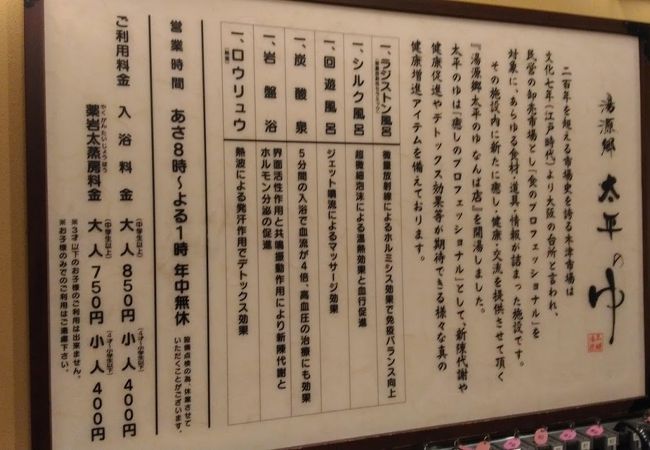 湯源郷 太平のゆ
二百年を超える市場史を誇る木津市場は
文化七年(江戸時代)より大阪の台所と言われ、
民営の卸売市場とし「食のプロフェッショナル」を
対象に、あらゆる食材・道具・情報が詰まった施設です。
その施設内に新たに癒し・健康・交流を提供させて頂く
『湯源郷太平のゆ なんば店』を開湯しました。
太平のゆは『癒しのプロフェッショナル』として、新陳代謝や
健康促進やデトックス効果等が期待できる様々な真の
健康増進アイテムを備えております。
一、ラジストン風呂 微量放射線によるホルミシス効果で免疫バランス向上
一、シルク風呂 超微細泡沫による温熱効果と血行促進
一、回遊風呂 ジェット噴流によるマッサージ効果
一、炭酸泉 5分間の入浴で血流が4倍、高血圧の治療にも効果
一、岩盤浴 界面活性作用と共鳴振動作用により新陳代謝と
ホルモン分泌の促進
一、ロウリュウ 熱波による発汗作用でデトックス効果
営業時間 あさ8時〜よる1時 年中無休
設備点検の為、休業させて
いただくことがございます。
ご利用料金 入浴料金 (中学生以上) 大人 850円 (4才〜小学生以下) 小人 400円
やくがんたいじょうぼう
薬岩太蒸房料金 (中学生以上) 大人 750円 (4才〜小学生以下) 小人 400円
※3才以下のお子様のご利用は出来ません。
※お子様のみでのご利用はご遠慮下さい。